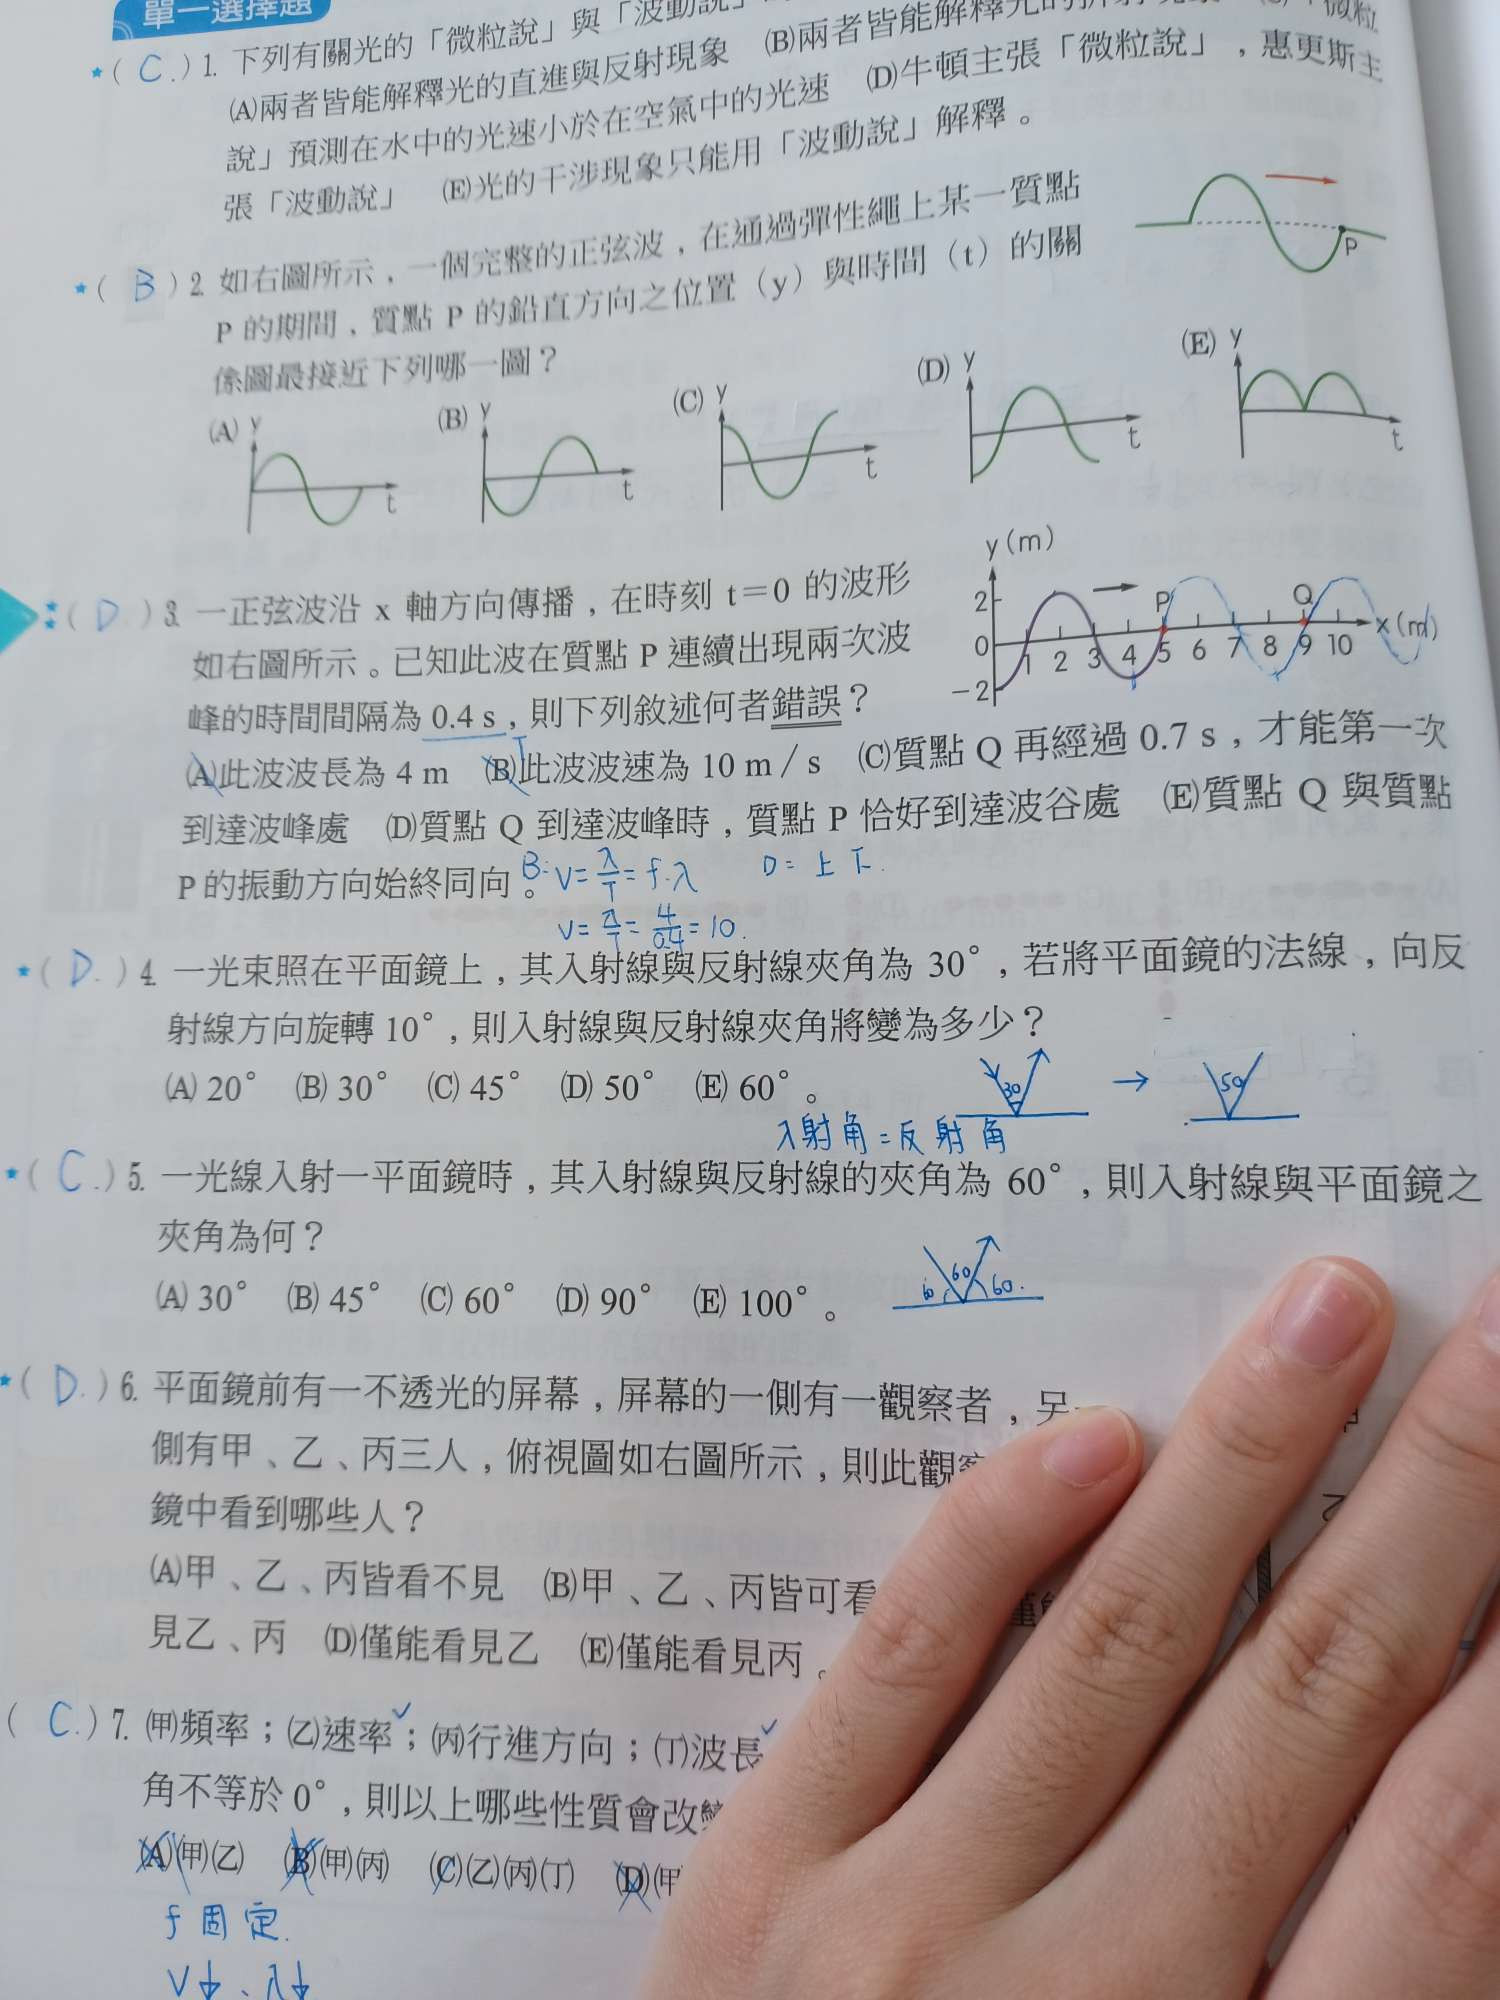 單一選擇題
(C.) 1. 下列有關光的「微粒說」與「波動說」
(A)兩者皆能解釋光的直進與反射現象 (B)兩者皆能解釋光的折射現象 「微粒
說」預測在水中的光速小於在空氣中的光速 (D)牛頓主張「微粒說」，惠更斯主
張「波動說」 (E)光的干涉現象只能用「波動說」解釋。
(B) 2. 如右圖所示，一個完整的正弦波，在通過彈性繩上某一質點
P 的期間，質點 P 的鉛直方向之位置（y）與時間（t）的關
係圖最接近下列哪一圖？
P
(A) y t (B) y t (C) y t (D) y t (E) y t
(D.) 3. 一正弦波沿 x 軸方向傳播，在時刻 t＝0 的波形
如右圖所示。已知此波在質點 P 連續出現兩次波
峰的時間間隔為 0.4 s，則下列敘述何者錯誤？
T
y(m)
2 P Q
0 1 2 3 4 5 6 7 8 9 10 x(m)
-2
(A)此波波長為 4 m (B)此波波速為 10 m／s (C)質點 Q 再經過 0.7 s，才能第一次
到達波峰處 (D)質點 Q 到達波峰時，質點 P 恰好到達波谷處 (E)質點 Q 與質點
P 的振動方向始終同向。
B: V=λ/T=f.λ D= 上下.
V=λ/T=4/0.4=10.
(D.) 4. 一光束照在平面鏡上，其入射線與反射線夾角為 30°，若將平面鏡的法線，向反
射線方向旋轉 10°，則入射線與反射線夾角將變為多少？
(A) 20° (B) 30° (C) 45° (D) 50° (E) 60°。
30 → 50
入射角=反射角
(C.) 5. 一光線入射一平面鏡時，其入射線與反射線的夾角為 60°，則入射線與平面鏡之
夾角為何？
(A) 30° (B) 45° (C) 60° (D) 90° (E) 100°。
60 60 60.
(D.) 6. 平面鏡前有一不透光的屏幕，屏幕的一側有一觀察者，另
側有甲、乙、丙三人，俯視圖如右圖所示，則此觀察
鏡中看到哪些人？
(A)甲、乙、丙皆看不見 (B)甲、乙、丙皆可看
見乙、丙 (D)僅能看見乙 (E)僅能看見丙。
(C.) 7. (甲)頻率；(乙)速率；(丙)行進方向；(丁)波長
角不等於 0°，則以上哪些性質會改變
(A)(甲)(乙) (B)(甲)(丙) (C)(乙)(丙)(丁) (D)(甲
f 固定.
V↓、λ↓